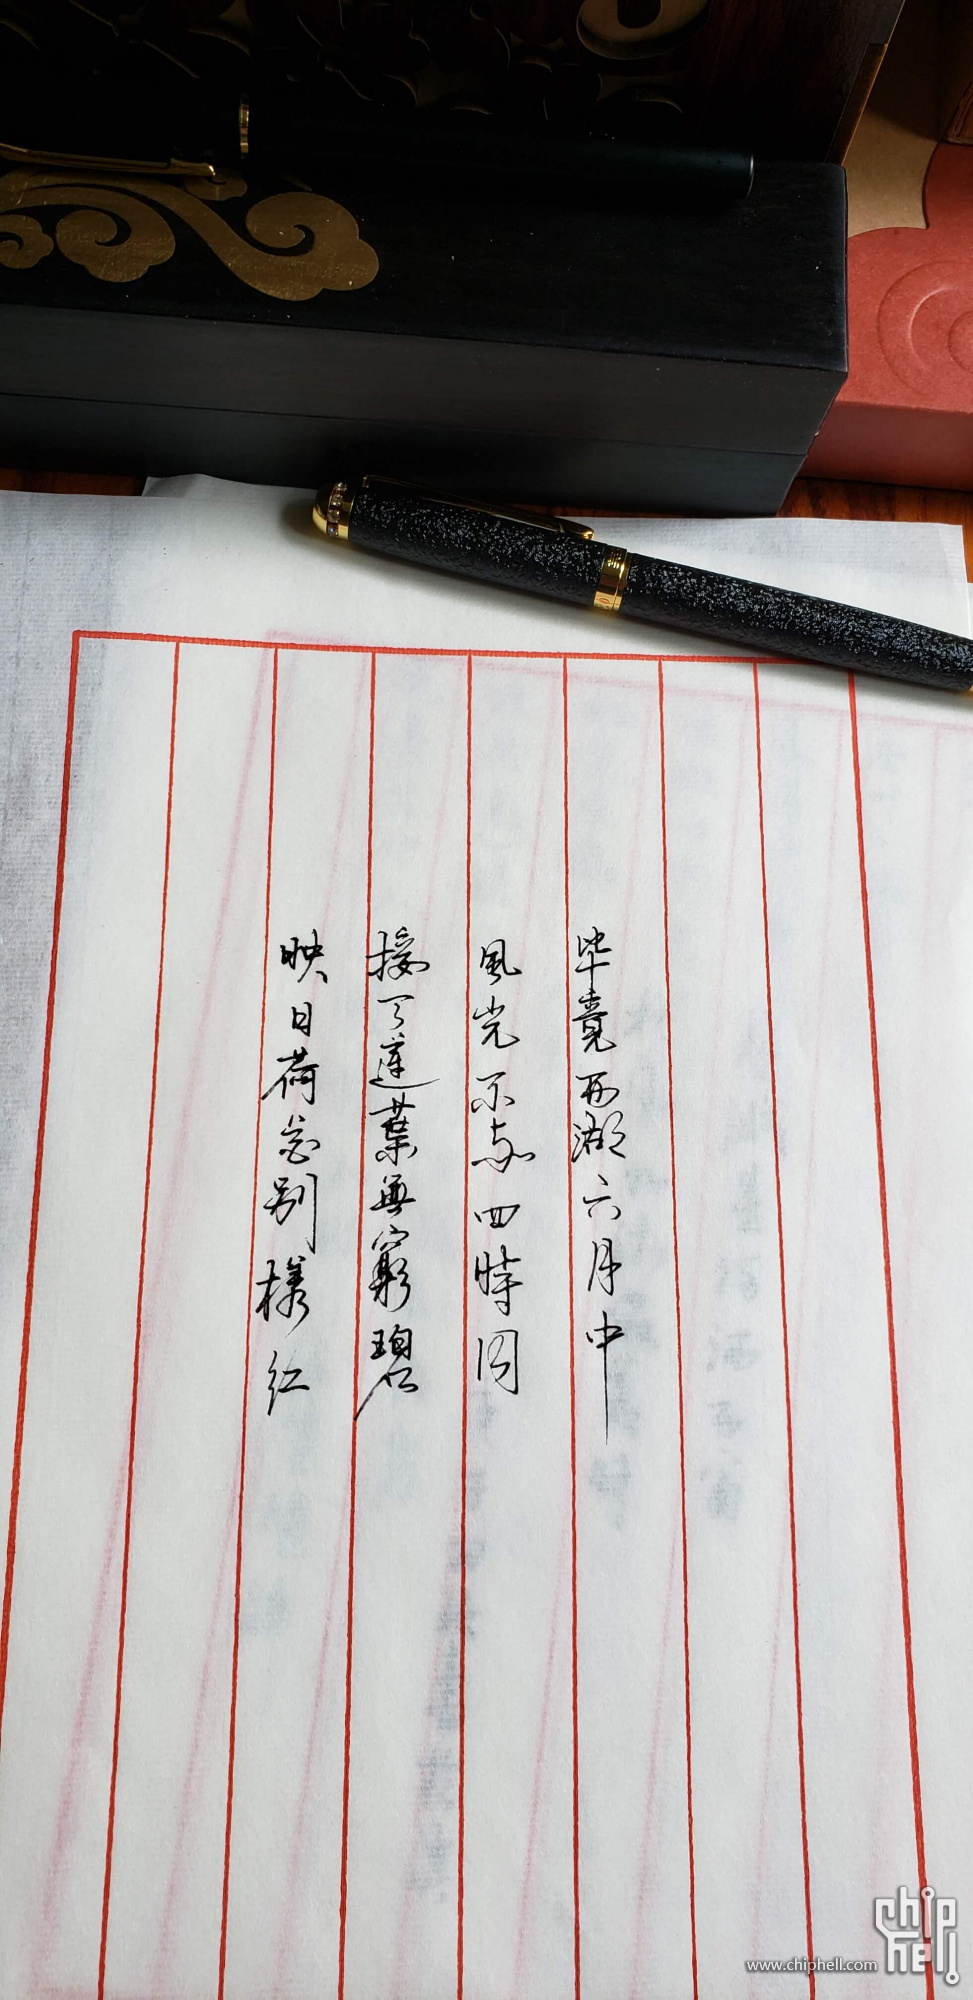 毕竟西湖六月中
風光不与四時同
接天蓮葉無窮碧
映日荷花别樣红
www.chiphell.com
chip hell